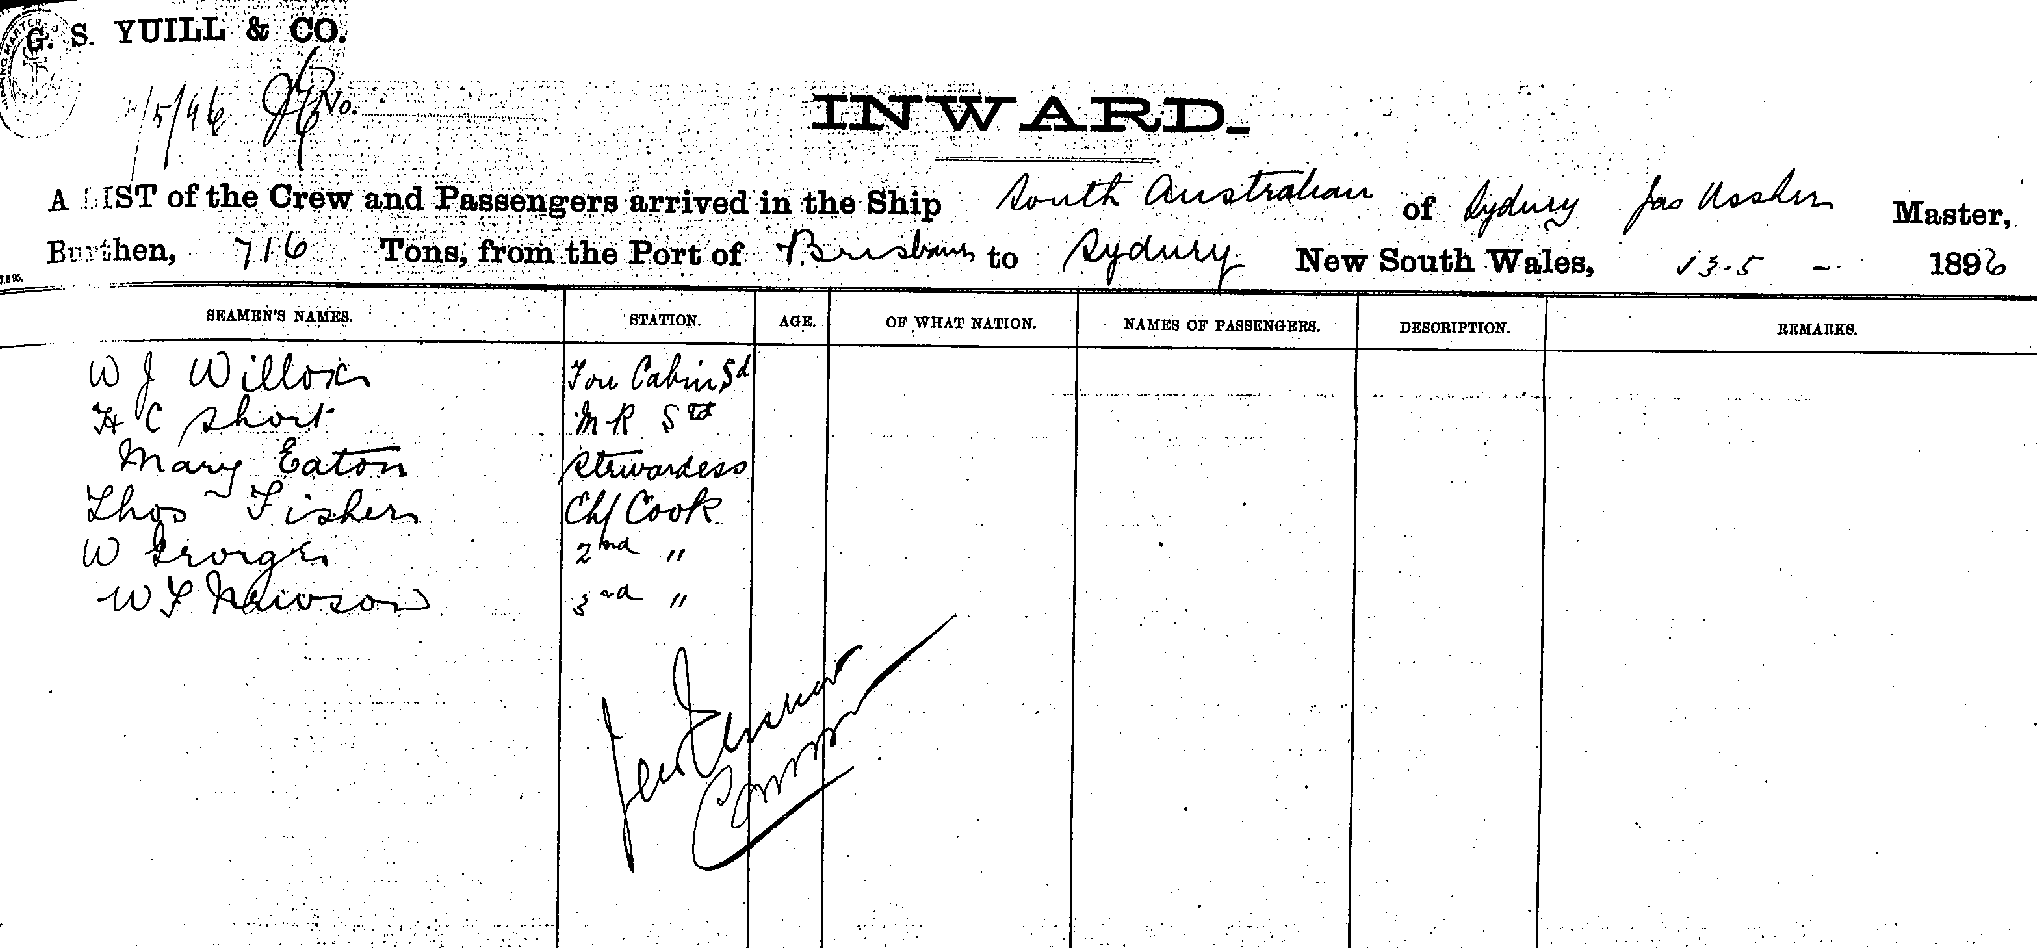 G. S. YUILL & CO.
/5/96 No.
INWARD.
A LIST of the Crew and Passengers arrived in the Ship South Australian of Sydney Jas Ussher Master,
Burthen, 716 Tons, from the Port of Brisbane to Sydney New South Wales, 13.5 - 1896
SEAMEN'S NAMES. STATION. AGE. OF WHAT NATION. NAMES OF PASSENGERS. DESCRIPTION. REMARKS.
W J Willox Fore Cabin Sd
H C Short M R Std
Mary Eaton Stewardess
Thos Fisher Chf Cook
W George 2nd "
W F Nawson 3rd "